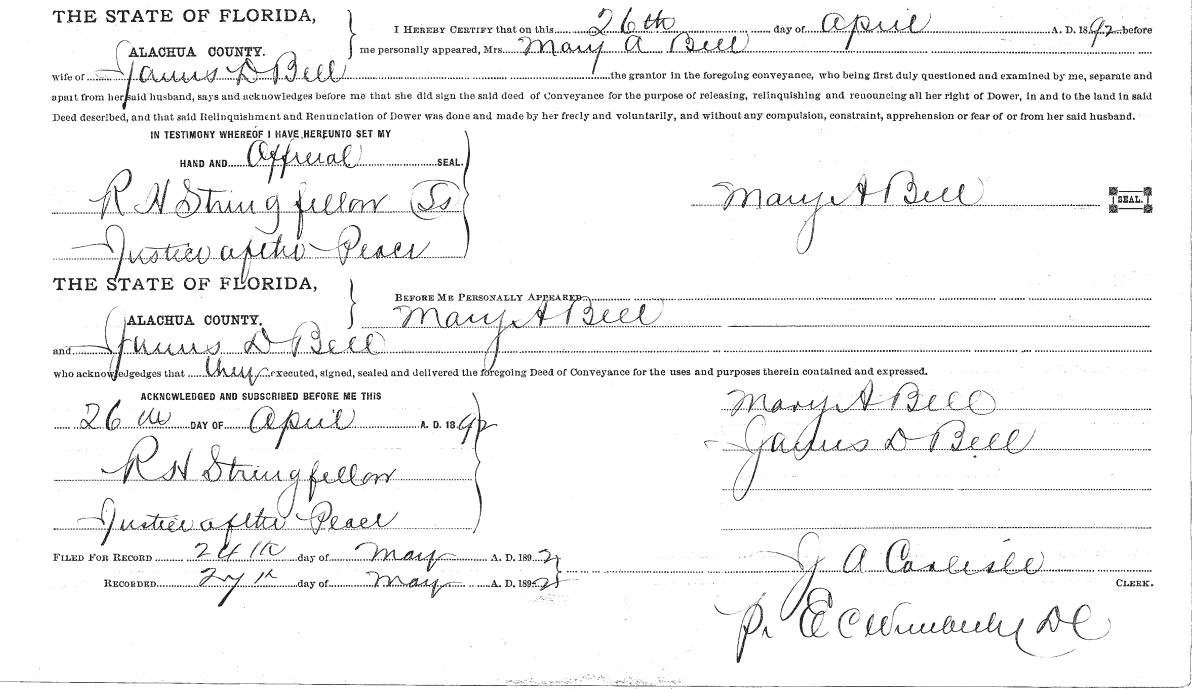 THE STATE OF FLORIDA,
I HEREBY CERTIFY that on this 26th day of April A. D. 1892 before
ALACHUA COUNTY. me personally appeared, Mrs. Mary A Bell
wife of James D Bell the grantor in the foregoing conveyance, who being first duly questioned and examined by me, separate and
apart from her said husband, says and acknowledges before me that she did sign the said deed of Conveyance for the purpose of releasing, relinquishing and renouncing all her right of Dower, in and to the land in said
Deed described, and that said Relinquishment and Renunciation of Dower was done and made by her freely and voluntarily, and without any compulsion, constraint, apprehension or fear of or from her said husband.
IN TESTIMONY WHEREOF I HAVE HEREUNTO SET MY
HAND AND Official SEAL.
R H Stringfellow
Mary A Bell SEAL.
Justice of the Peace
THE STATE OF FLORIDA,
BEFORE ME PERSONALLY APPEARED
ALACHUA COUNTY. Mary A Bell
and James D Bell
who acknowledgedges that they executed, signed, sealed and delivered the foregoing Deed of Conveyance for the uses and purposes therein contained and expressed.
ACKNOWLEDGED AND SUBSCRIBED BEFORE ME THIS
Mary A Bell
26th DAY OF April A. D. 1892
James D Bell
R H Stringfellow
Justice of the Peace
FILED FOR RECORD 24th day of May A. D. 1892
J A Carlisle
RECORDED 27th day of May A. D. 1892 CLERK.
pr E C Wimberly DC